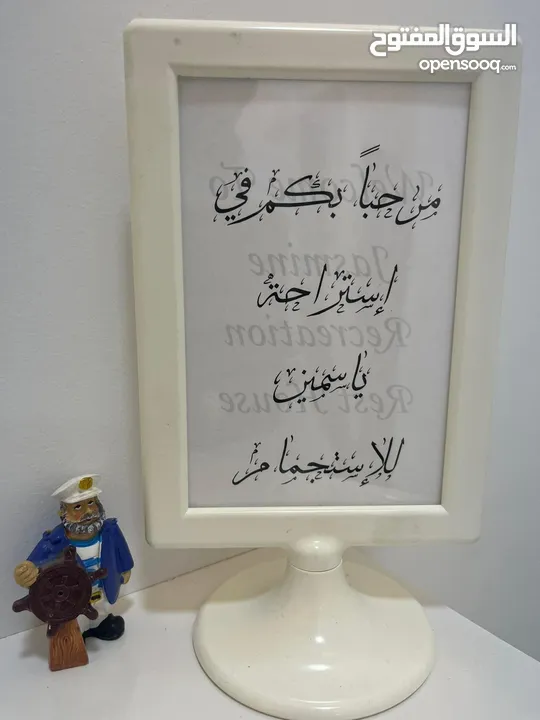 السوق المفتوح
opensooq.com
مرحباً بكم في
إستراحة
ياسمين
للإستجمام
Welcome To
Jasmine
Recreation
Rest House